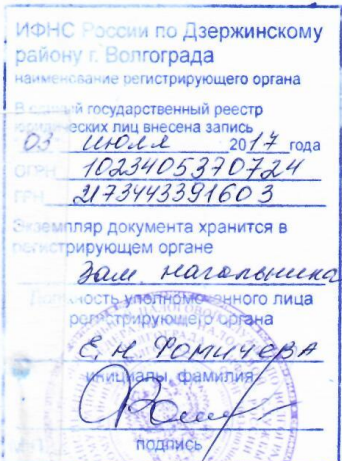 ИФНС России по Дзержинскому
району г. Волгограда
наименование регистрирующего органа
В единый государственный реестр
юридических лиц внесена запись
03 июля 2017 года
ОГРН 1023405370724
ГРН 2173443391603
Экземпляр документа хранится в
регистрирующем органе
Зам. начальника
Должность уполномоченного лица
регистрирующего органа
Е.Н. Фомичева
инициалы, фамилия
подпись